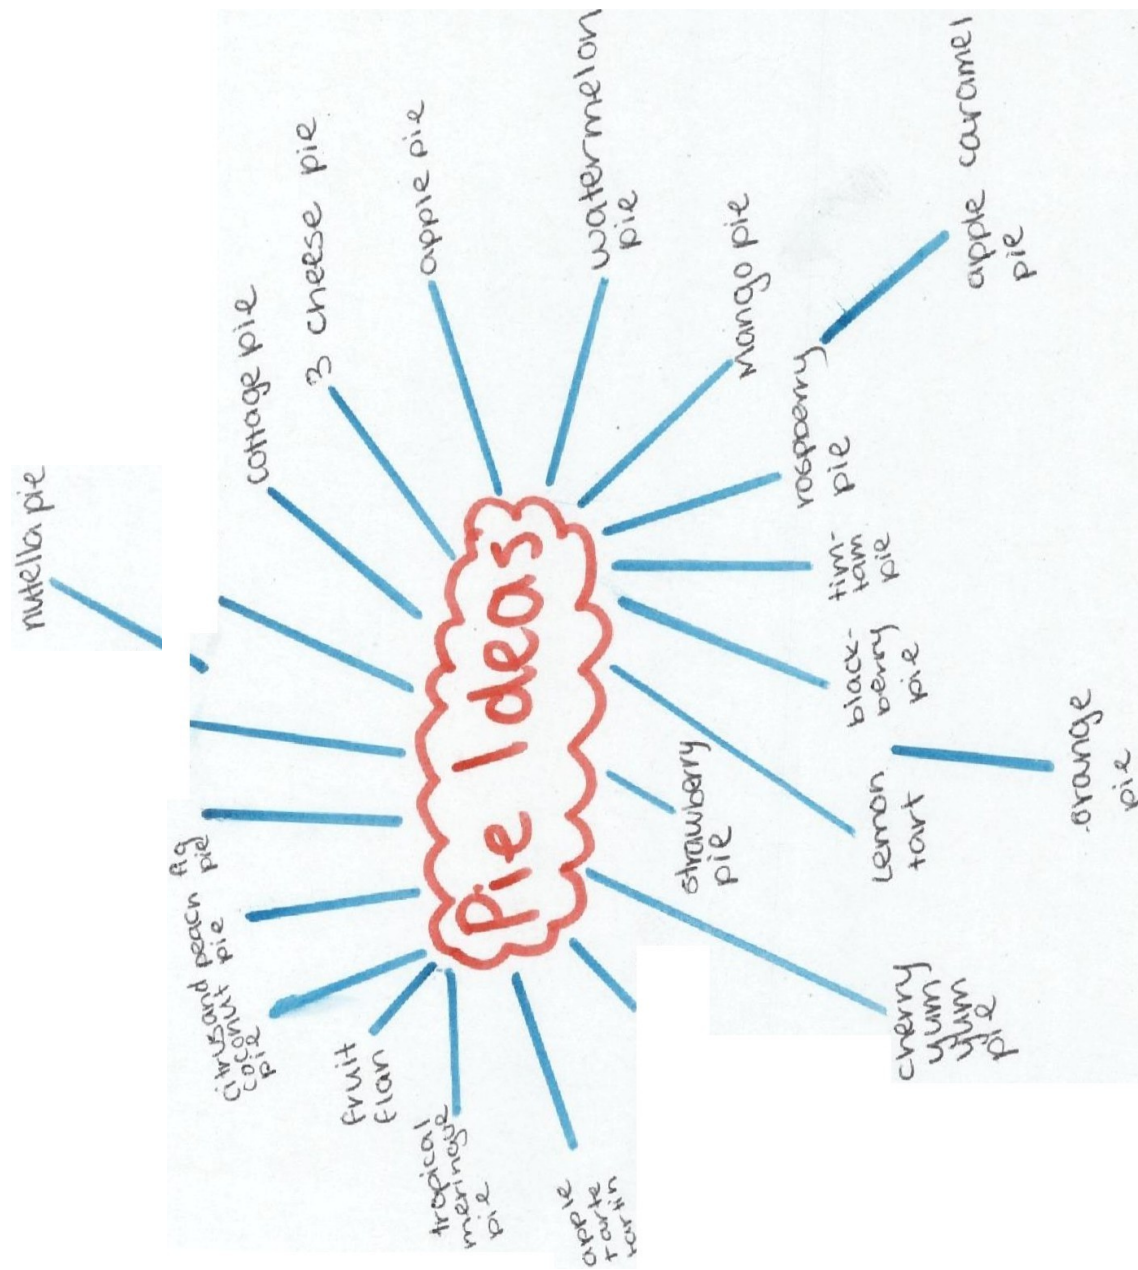 Pie Ideas
nutella pie
cottage pie
3 cheese pie
apple pie
watermelon
pie
mango pie
apple caramel
pie
raspberry
pie
tim-
tam
pie
black-
berry
pie
orange
pie
Lemon
tart
strawberry
pie
cherry
yum
yum
pie
apple
tarte
tartin
tropical
meringue
pie
fruit
flan
citrus and
coconut
pie
peach
pie
fig
pie